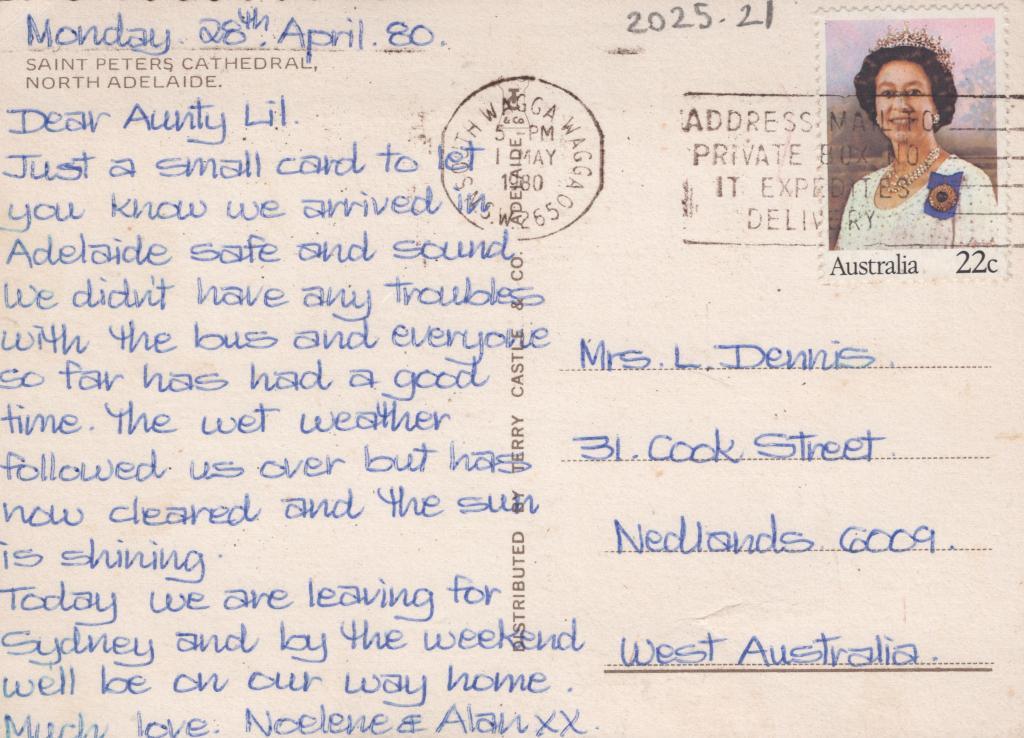 2025.21
Monday 28th. April. 80.
SAINT PETERS CATHEDRAL,
NORTH ADELAIDE.
Dear Aunty Lil.
Just a small card to let
you know we arrived in
Adelaide safe and sound
We didn't have any troubles
with the bus and everyone
so far has had a good
time. The wet weather
followed us over but has
now cleared and the sun
is shining.
Today we are leaving for
Sydney and by the weekend
we'll be on our way home.
Much love. Noelene & Alan xx.
DISTRIBUTED BY TERRY CASTLE & CO. ADELAIDE
SOUTH WAGGA WAGGA
5 - PM
1 MAY
1980
N.S.W. 2650
ADDRESS MAIL TO
PRIVATE BOX NO.
IT EXPEDITES
DELIVERY
Australia 22c
Mrs. L. Dennis.
31. Cook Street.
Nedlands. 6009.
West Australia.